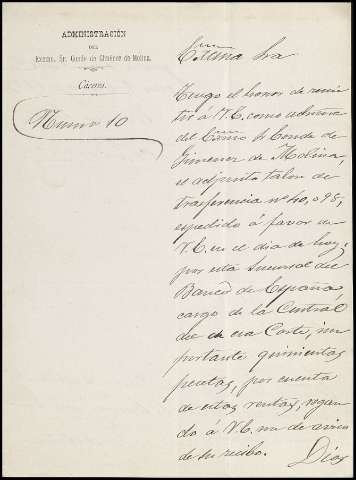 ADMINISTRACIÓN
DEL
Excmo. Sr. Conde de Giménez de Molina.
Cáceres.
Numo 10
Exma Sra
Tengo el honor de remi
tir á V.E. como
del Exmo Sr Conde de
Gimenez de Molina,
el adjunto talon de
trasferencia nº 40,098,
espedido á favor de
V.E. en el dia de hoy,
por esta Sucursal del
Banco de España,
cargo de la Central
de esa Corte, im
portante quinientas
pesetas, por cuenta
de estas rentas, rogan
do á V.E. me dé aviso
de su recibo. Dios